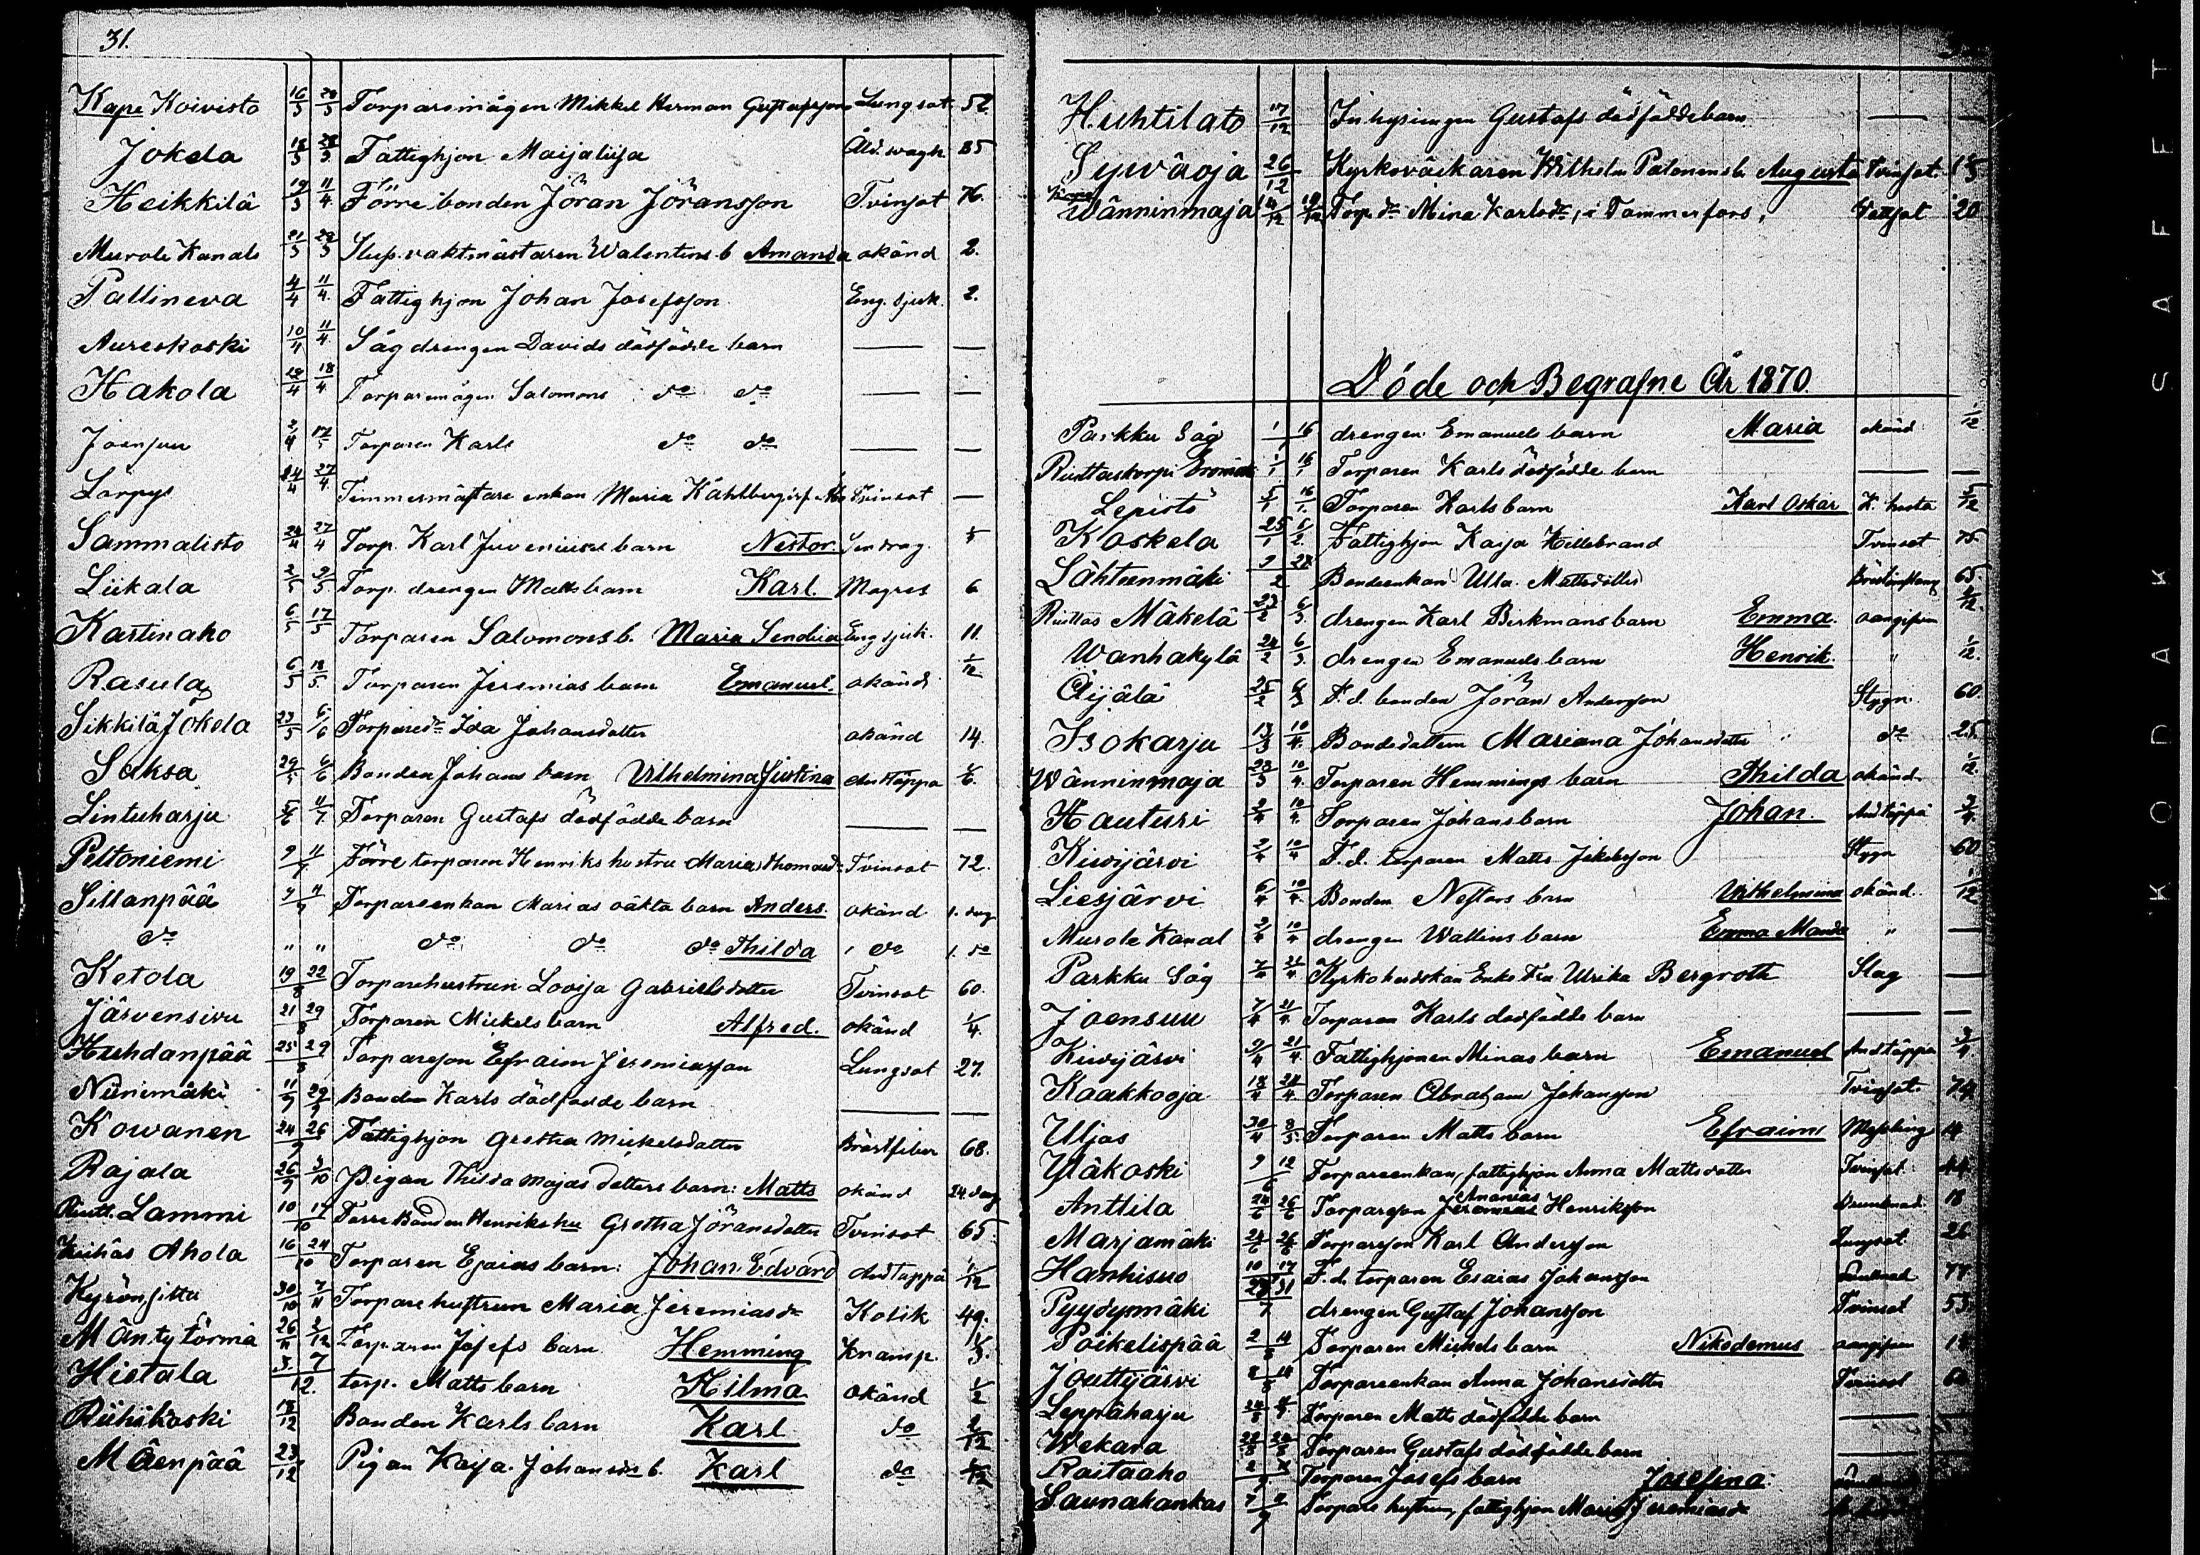 31.
Kapee Koivisto 16/3 28/3 Torparemågen Mikkel Herman Gustafsson Lungsot 52.
Jokela 18/3 28/3 Fattighjon Maijaliisa Åld.swagh. 85
Heikkilä 19/3 11/4 Förre bonden Jöran Jöransson Tvinsot 76.
Murole Kanals 21/3 28/3 Slup.vaktmästaren Walentins b Amanda okänd 2.
Pallineva 4/4 11/4. Fattighjon Johan Josefsson Eng. sjuk. 2.
Aureskoski 10/4 11/4 Såg drengen Davids dödfödde barn — —
Hakola 12/4 18/4 Torparemågen Salomons do do — —
Joensuu 2/4 17/5 Torparen Karls do do — —
Lörpys 24/4 27/4. Timmermästare enkan Maria Kahlberg Tvinsot —
Sammalisto 24/4 27/4 Torp. Karl Juveniuses barn Nestor
Liikala 2/5 9/5 Torp. drengen Matts barn Karl. Magres 6
Kartinaho 6/5 17/5 Torparen Salomons b. Maria Senobia Eng sjuk. 11.
Rasula 6/5 18/5. Torparen Jeremias barn Emanuel. okänd 1/12
Sikkilä Jokela 23/5 6/6 Torparedr Ida Johansdotter okänd 14.
Saksa 29/5 6/6 Bonden Johans barn Vilhelmina Justina andtäppa
Lintuharju 5/6 11/7 Torparen Gustafs dödfödde barn — —
Peltoniemi 9 11/7 Förre torparen Henriks hustru Maria Thomasdr Tvinsot 72.
Sillanpää 7/7 11 Torpareenkan Marias oäkta barn Anders. okänd 1. dag
do " " do do do Thilda do 1. do
Ketola 19 22/8 Torparehustrun Lovisa Gabrielsdotter Tvinsot 60.
Järvensivu 21 29/8 Torparen Mickels barn Alfred. okänd 1/4.
Huhdanpää 25 29/8 Torpareson Efraim Jeremiasson Lungsot 27.
Niinimäki 11/9 29/9 Bonden Karls dödfödde barn — —
Kowanen 24 26/9 Fattighjon Gretha Mickelsdotter Bröstfeber 68.
Rajala 26/9 3/10 Pigan Thilda Majasdotters barn: Matts okänd 24 dag
Ruutt. Lammi 10 17/10 Förre Bonden Henriks hu Gretha Jöransdotter Tvinsot 65.
Ahola 16 24/10 Torparen Esaias barn: Johan Edvard Andtäppa 1/12
Kyrönsitta 30/10 7/11 Torparehustrun Maria Jeremiasdr Kolik 49.
Mäntytörmä 26/11 2/12 Torparen Josefs barn Hemming Kramp. 1/3.
Hietala 3 7/12. torp. Matts barn Hilma okänd 1/2
Riihikoski 18/12 Bonden Karls barn Karl do 2/12
Mäenpää 23/12 Pigan Kajsa Johansdr b. Karl do
Huhtilato 17/12 Inhysingen Gustafs dödföddebarn — —
Sywäoja 26/12 Kyrkoväktaren Wilhelm Palonens b. Augusta Tvinsot
Wänninmaja Torp.dr Mina Karlsdr, i Tammerfors, 20
Döde och Begrafne År 1870.
Parkku Såg 1 16/1 drengen Emanuels barn Maria okänd 1/12
Ruttaskorpi 1/1 16/1 Torparen Karls dödfödde barn — —
Lepistö 5/1 16/1. Torparen Karls barn Karl Oskar K. hosta 5/12
Koskela 25/1 6/2. Fattighjon Kajsa Hillebrand Tvinsot 75
Lähteenmäki 9 28/2 Bondeenkan Ulla Mattsdotter 65.
Ruttas Mäkelä 23/2 6/3. drengen Karl Birkmans barn Emma. oangifven
Wanhakylä 24/2 6/3 drengen Emanuels barn Henrik. " 1/12.
Äijälä 25/2 6/3 F.d. bonden Jöran Andersson Stygn 60
Isokarju 13/3 10/4. Bondedottern Mariana Johansdotter do 25
Wänninmaja 28/3 10/4. Torparen Hemmings barn Thilda okänd 1/12.
Hauturi 2/4 10/4. Torparen Johans barn Johan. Andtäppa 3/4
Kiwijärvi 2/4 10/4 F.d. torparen Matts Jakobsson Stygn 60
Liesjärvi 6/4 10/4. Bonden Nestors barn Vilhelmina okänd 1/12
Murole Kanal 2/4 10/4 drengen Wallins barn Emma Manda " —
Parkku Såg 7/4 21/4 Kyrkoherdskan Enke Fru Ulrika Bergroth Slag —
Joensuu 7/4 21/4. Torparen Karls dödfödde barn — —
Kiwijärvi 9/4 21/4. Fattighjonen Minas barn Emanuel Andtäppa 3/4
Kaakkooja 18/4 24/4 Torparen Abraham Johansson Tvinsot 74
Uljas 30/4 8/5. Torparen Matts barn Efraim Messling 14
Yläkoski 9 12/6 Torpareenkan, fattighjon Anna Mattsdotter Tvinsot 44
Anttila 24/6 26/6 Torpareson Jeremias Ananias Henriksson 18
Marjamäki 24/6 26/6 Torpareson Karl Andersson Lungsot 26
Hanhisuo 10 17 F.d. torparen Esaias Johansson 77
Pyydysmäki 28 31/7 drengen Gustaf Johansson Tvinsot 53
Poikelispää 2 14/8 Torparen Mickels barn Nikodemus oangifven
Jouttijärvi 8 14/8 Torpareenkan Anna Johansdotter Tvinsot
Leppäharju Torparen Matts dödfödde barn —
Wekara 22/8 28/8 Torparen Gustafs dödfödde barn —
Raitaaho Torparen Josefs barn Josefina.
Saunakankas Torpare hustrun, fattighjon Maria Jeremiasdr
KODAK SAFET